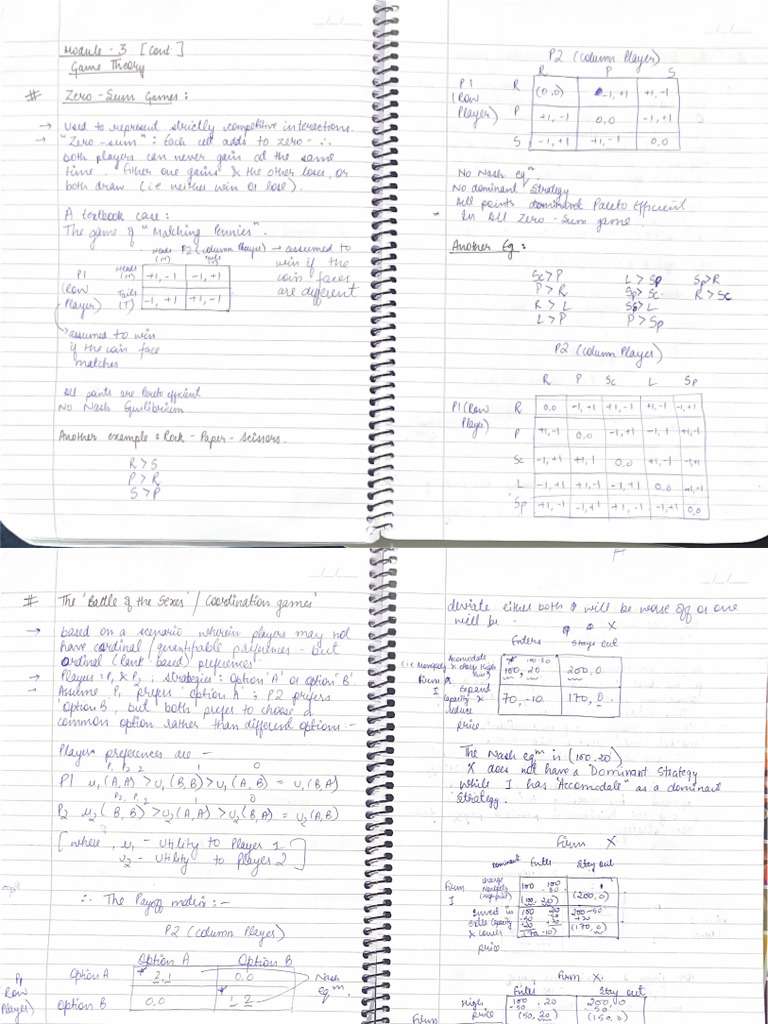 Module - 3 [Cont.]
Game Theory
# Zero-Sum Games:
→ Used to represent strictly competitive interactions.
→ "Zero-sum": Each cell adds to zero - ∴
both players can never gain at the same
time. Either one gains & the other loses, or
both draw (i.e neither win or lose).
A textbook case:
The game of "Matching Pennies".
Heads (H) Tails (T)
P2 (Column Player) → assumed to
win if the
coin faces
are different
P1
(Row
Player)
Heads (H) +1, -1 -1, +1
Tails (T) -1, +1 +1, -1
assumed to win
if the coin face
matches
All points are Pareto efficient
No Nash Equilibrium
Another example: Rock - Paper - Scissors.
R > S
P > R
S > P
P2 (Column Player)
R P S
P1
(Row
Player)
R (0,0) -1, +1 +1, -1
P +1, -1 0,0 -1, +1
S -1, +1 +1, -1 0,0
No Nash eqm
No dominant strategy
All points Pareto Efficient
In All Zero-Sum game.
Another Eg:
Sc > P L > Sp Sp > R
P > R Sp > Sc R > Sc
R > L L
L > P P > Sp
P2 (Column Player)
R P Sc L Sp
P1 (Row
Player)
R 0,0 -1, +1 +1, -1 +1, -1 -1, +1
P +1, -1 0,0 -1, +1 -1, +1 +1, -1
Sc -1, +1 +1, -1 0,0 +1, -1 -1, +1
L -1, +1 +1, -1 -1, +1 0,0 +1, -1
Sp +1, -1 -1, +1 +1, -1 -1, +1 0,0
# The 'Battle of the Sexes' / Coordination games'
→ based on a scenario wherein players may not
have cardinal / quantifiable preferences - but
ordinal (rank based) preferences.
→ Players: P1 & P2 ; strategies: Option 'A' or option 'B'.
- Assume P1 prefers 'Option A' ; P2 prefers
'Option B', but both prefer to choose a
common option rather than different options:-
Players preferences are -
P1 P2 2 1 0
P1 u1(A,A) > u1(B,B) > u1(A,B) = u1(B,A)
P2 P1 1 0
P2 u2(B,B) > u2(A,A) > u2(B,A) = u2(A,B)
[where, u1 - Utility to Player 1
u2 - Utility to Player 2]
∴ The Payoff matrix:-
P2 (Column Player)
Option A Option B
P1
(Row
Player)
Option A 2,1 0,0
Option B 0,0 1,2
Nash
eqm.
deviate either both will be worse off or one
will be.
X
Enters Stays out
(i.e Monopoly
Accomodate
& charge High
100, 20 200, 0
Firm
I
Expand
capacity &
reduce
price
70, -10 170, 0
The Nash eqm is (100, 20)
X does not have a Dominant Strategy
while I has "Accomodate" as a dominant
strategy.
Firm X
Dominant Enter Stay out
Firm
I
charge
monopoly
100 100
(100, 20) (200, 0)
Invest in
extra capacity
& lower
price
200-50
+20
(70 -10) (170, 0)
Firm X.
Enter Stay out
Firm
High
price
100, 20 200, 0
-50 -50
(50, 20) (150, 0)